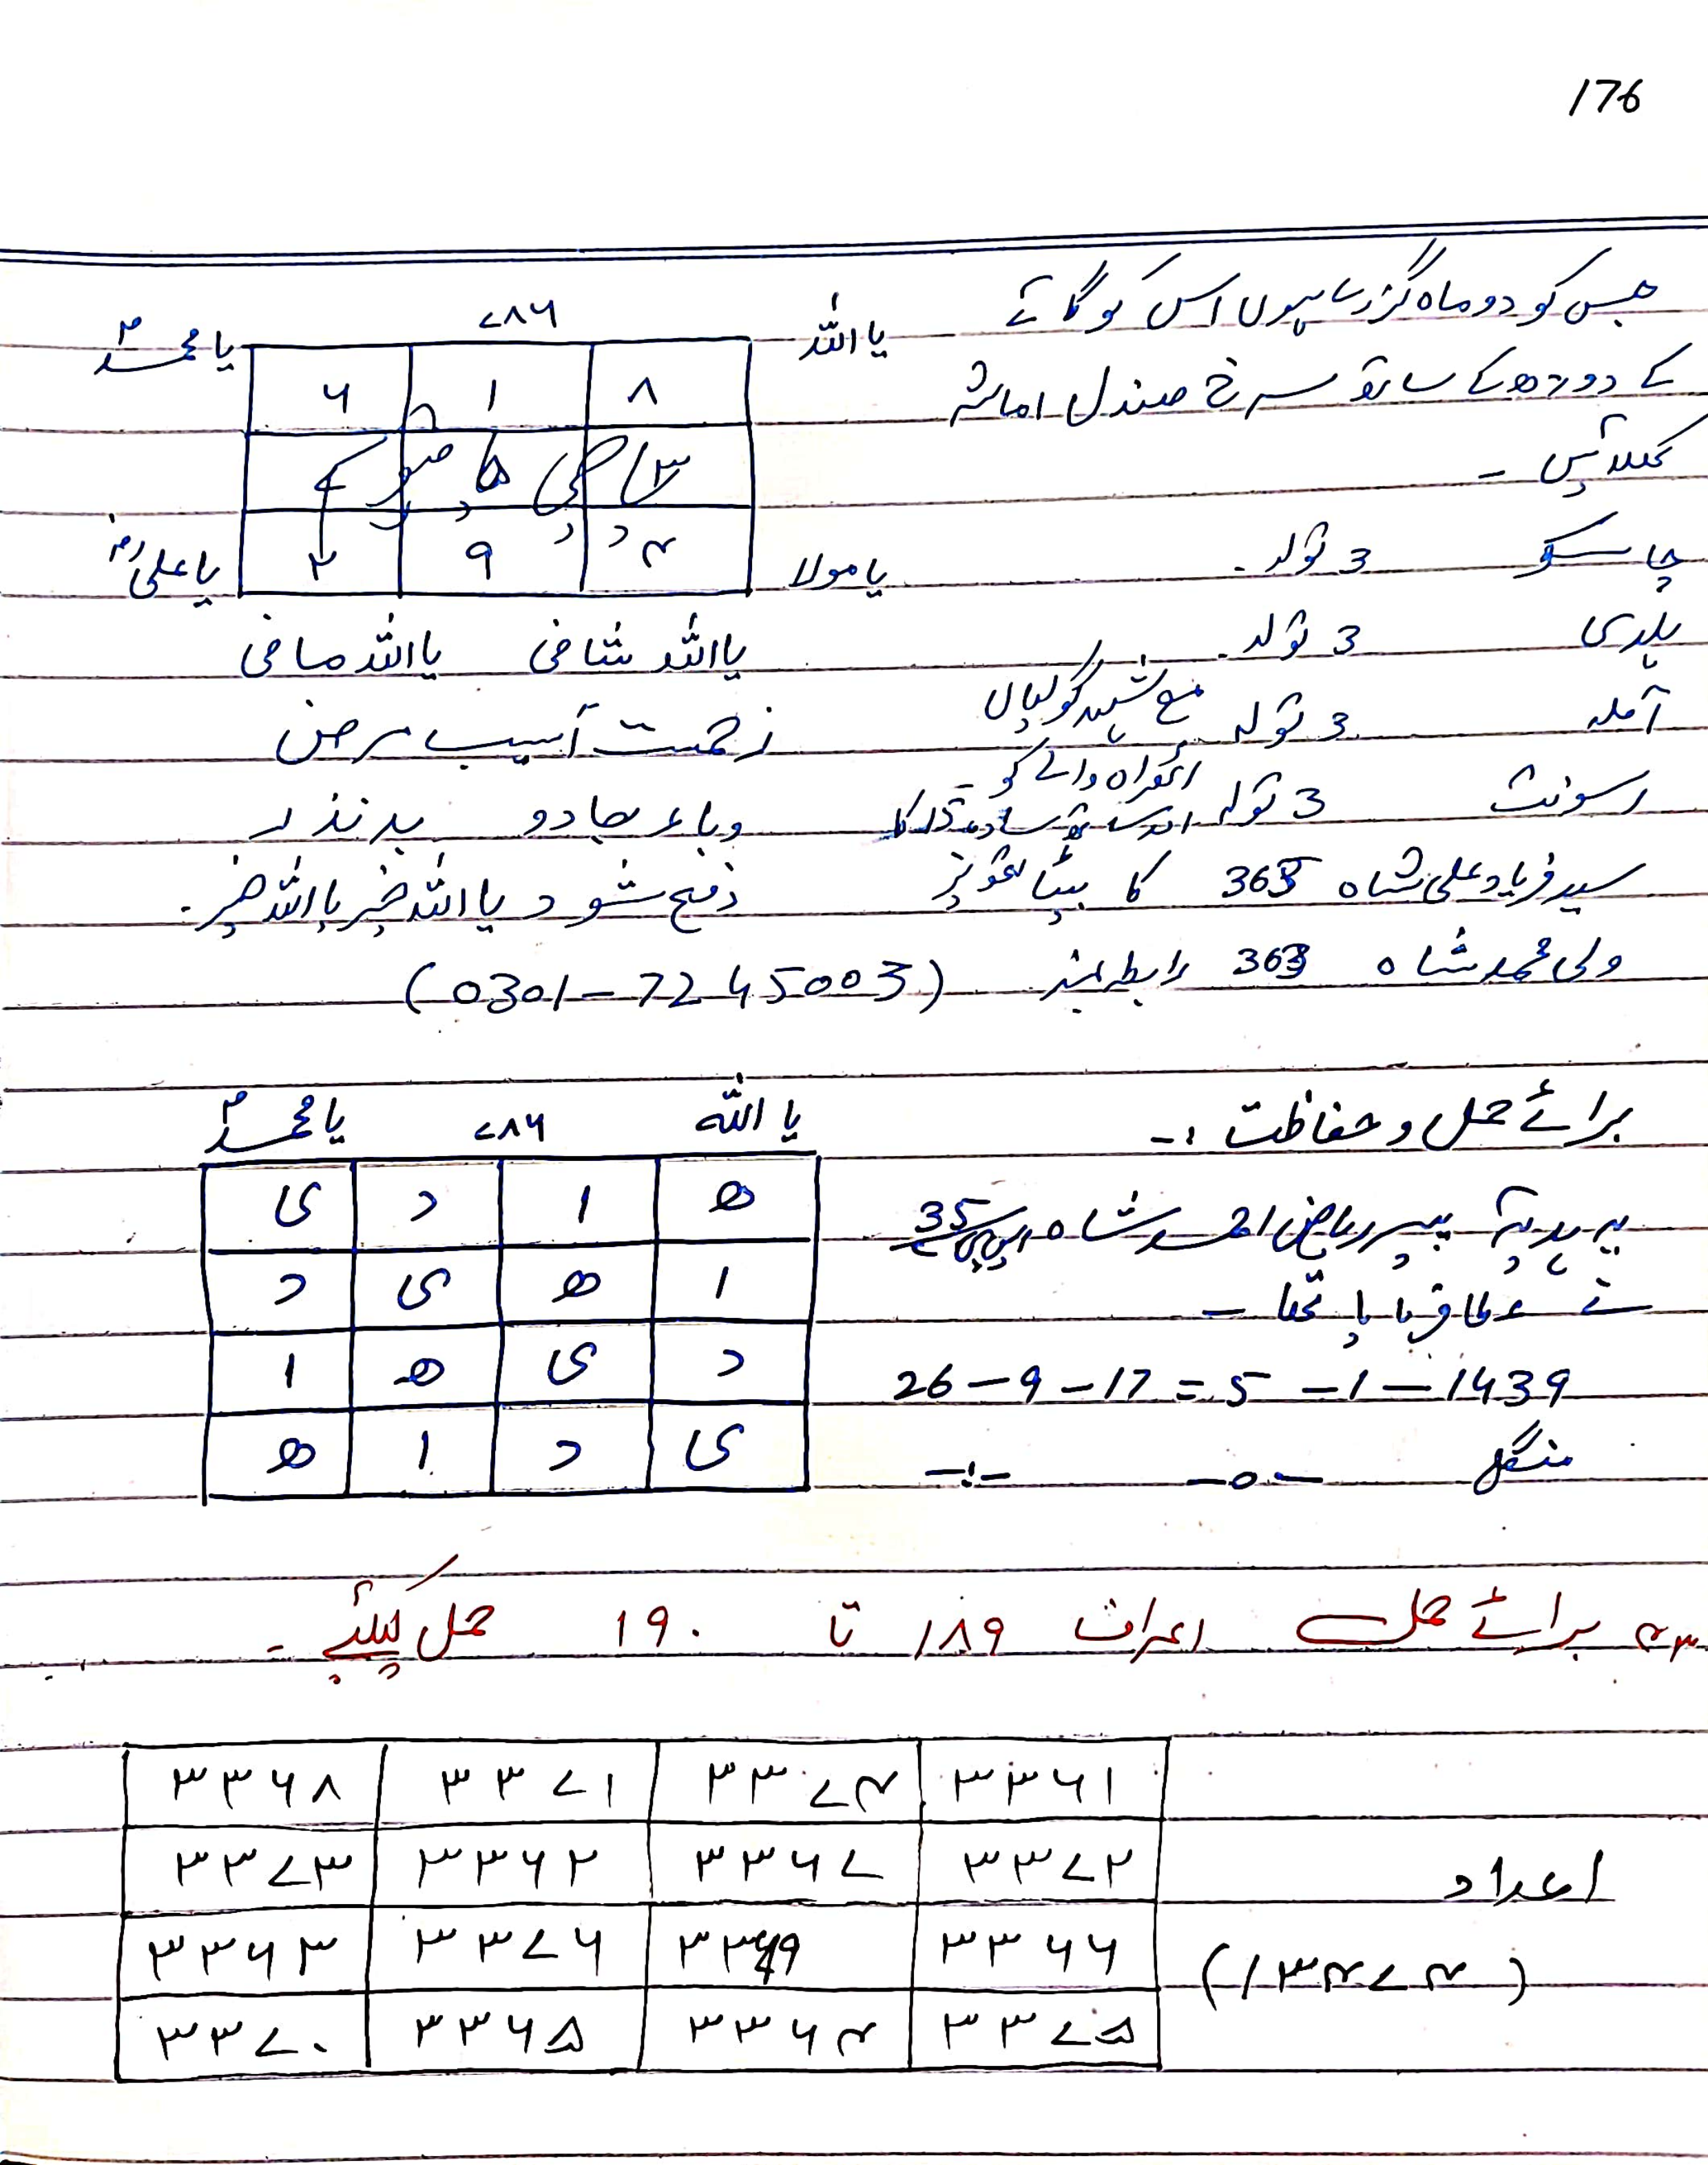 176
جس کو دو ماہ گزرے ہوں اس کو گائے
کے دودھ کے ساتھ سرخ صندل 1 ماشہ
کھلائیں ۔
چاسکو 3 تولہ ۔
ہلدی 3 تولہ ۔
آملہ 3 تولہ مع شہد گولیاں
رسونت 3 تولہ اٹھراہ والے کو ۔
سید فریاد علی شاہ 363 کا بیٹا تعویز
ولی محمد شاہ 363 رابطہ نمبر (0301-7245003)
یا اللہ ۷۸۶ یا محمدؐ
۸ ۱ ۶
۳
۴ ۹ ۲
یا مولا یا علیؓ
یا اللہ شافی یا اللہ صافی
زحمت آسیب مرض
وباء جادو بد نذر
دفع شود یا اللہ خیر یا اللہ خیر ۔
برائے حمل و حفاظت :-
یہ ہدیہ پیر ریاض احمد شاہ 35
نے عطا فرمایا تھا ۔
26-9-17 = 5-1-1439
منگل
یا اللہ ۷۸۶ یا محمدؐ
ھ ا د ی
ا ھ ی د
د ی ھ ا
ی د ا ھ
۴۳ برائے حمل اعراف ۱۸۹ تا ۱۹۰ حمل کیلئے ۔
۳۳۶۱ ۳۳۷۴ ۳۳۷۱ ۳۳۶۸
۳۳۷۲ ۳۳۶۷ ۳۳۶۲ ۳۳۷۳
۳۳۶۶ ۳۳۶۹ ۳۳۷۶ ۳۳۶۳
۳۳۷۵ ۳۳۶۴ ۳۳۶۵ ۳۳۷۰
اعداد
(۱۳۴۷۴)